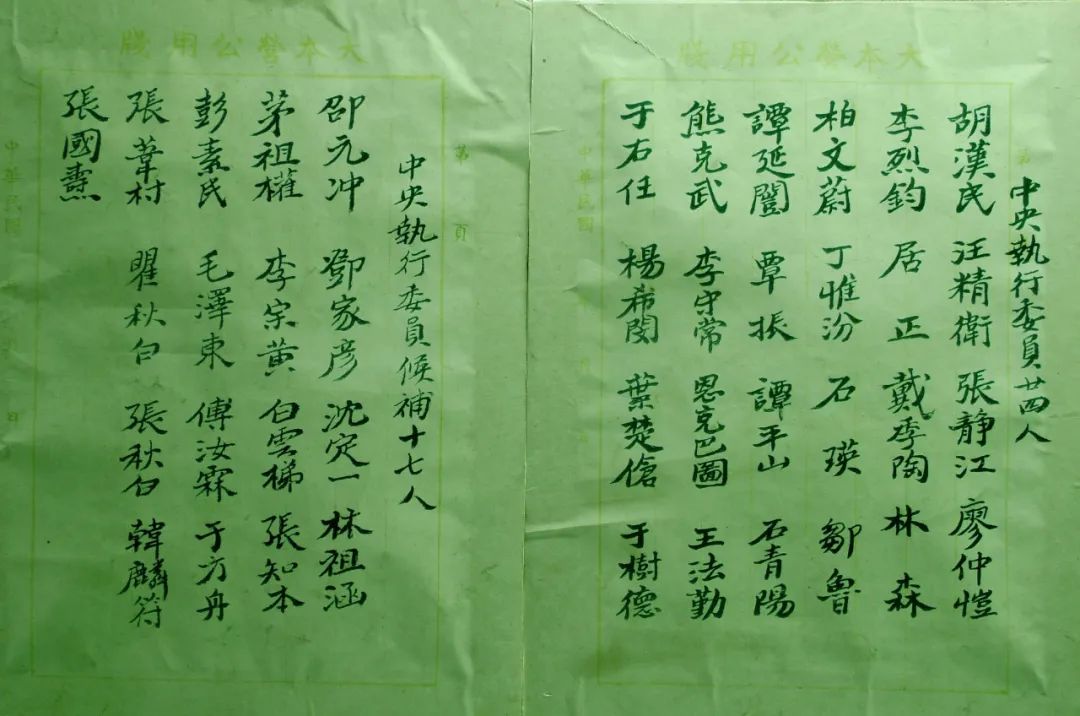 大本營公用牋
中央執行委員廿四人
胡漢民 汪精衛 張靜江 廖仲愷
李烈鈞 居正 戴季陶 林森
柏文蔚 丁惟汾 石瑛 鄒魯
譚延闓 覃振 譚平山 石青陽
熊克武 李守常 恩克巴圖 王法勤
于右任 楊希閔 葉楚傖 于樹德
中華民國
大本營公用牋
第 頁
中央執行委員候補十七人
邵元冲 鄧家彦 沈定一 林祖涵
茅祖權 李宗黃 白雲梯 張知本
彭素民 毛澤東 傅汝霖 于方舟
張葦村 瞿秋白 張秋白 韓麟符
張國燾
中華民國 日